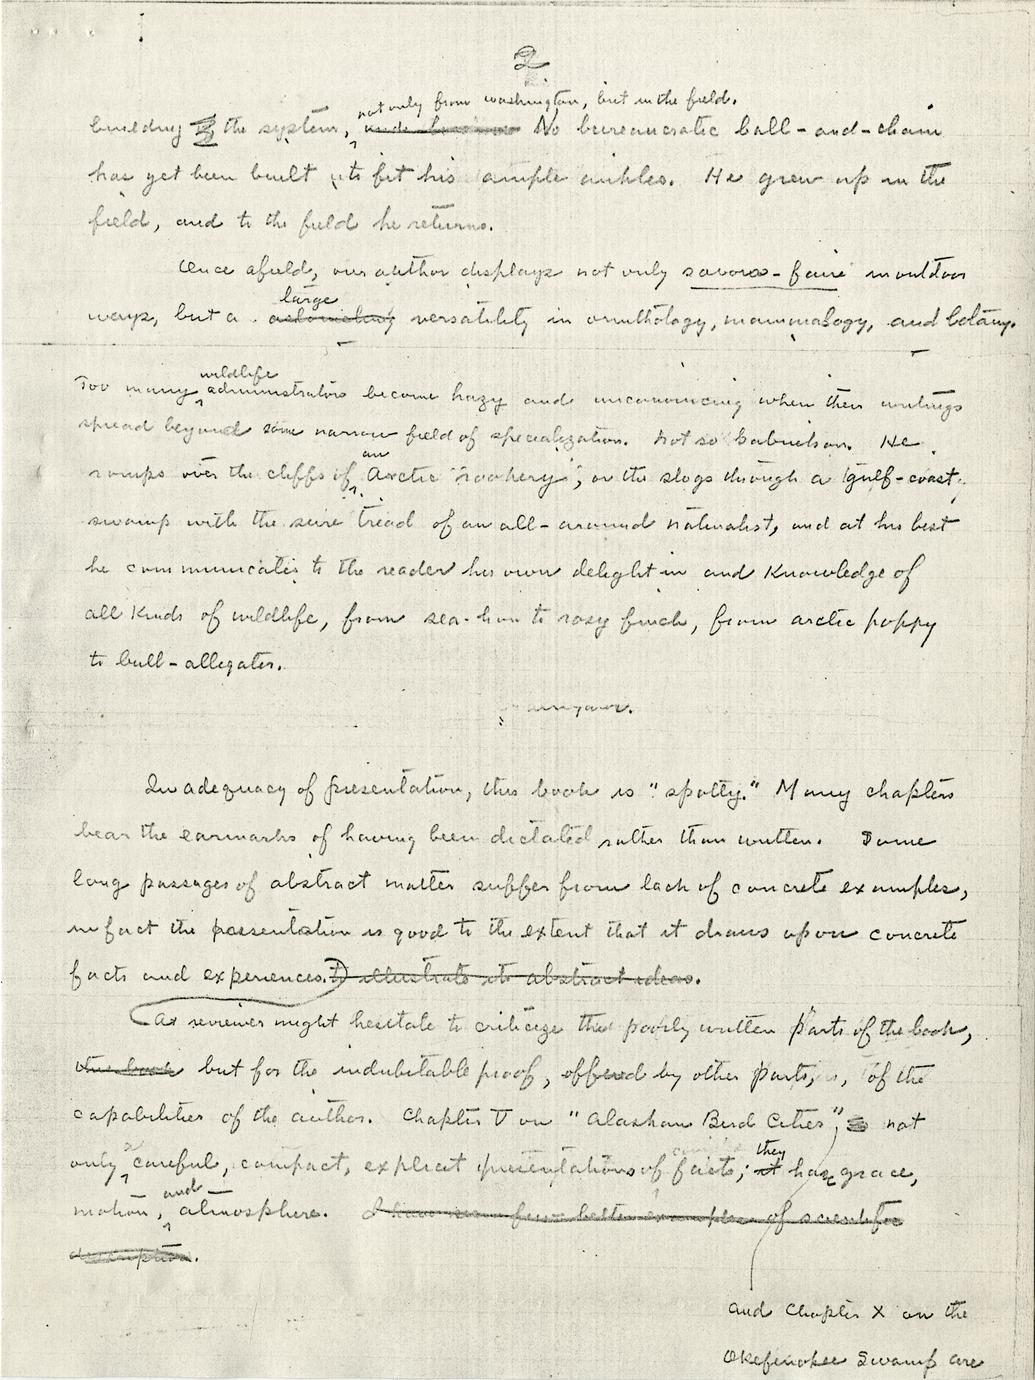 2
not only from Washington, but in the field.
building the system, No bureaucratic ball-and-chain
has yet been built to fit his ample ankles. He grew up in the
field, and to the field he returns.
Once afield, our author displays not only savoir-faire in outdoor
large
ways, but a astonishing versatility in ornithology, mammalogy, and botany.
wildlife
Too many administrators become hazy and unconvincing when their writings
spread beyond some narrow field of specialization. Not so Gabrielson. He
an
romps over the cliffs of Arctic "rookery", or the slogs through a gulf-coast
swamp with the sure tread of an all-around naturalist, and at his best
he communicates to the reader his own delight in and knowledge of
all kinds of wildlife, from sea-lion to rosy finch, from arctic poppy
to bull-alligator.
In adequacy of presentation, this book is "spotty." Many chapters
bear the earmarks of having been dictated rather than written. Some
long passages of abstract matter suffer from lack of concrete examples,
in fact the presentation is good to the extent that it draws upon concrete
facts and experiences. to illustrate its abstract ideas.
A reviewer might hesitate to criticize the poorly written parts of the book,
the book but for the indubitable proof, offered by other parts, of the
capabilities of the author. Chapter V on "Alaskan Bird Cities", is not
a they
only careful, compact, explicit presentations of facts; it has grace,
and
motion, atmosphere. I have seen few better examples of scientific
description.
and Chapter X on the
Okefenokee Swamp are